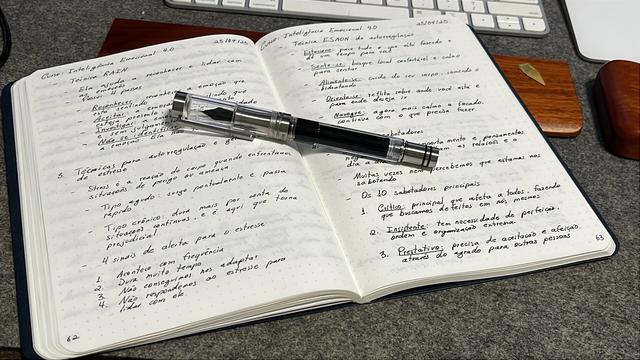 Curso Inteligência Emocional 4.0 25/04/25
Técnica RAIN
Ela ajuda a reconhecer e lidar com
Passos
Reconhecer: reconhecer a emoção que
está sentindo
Aceitar: a emoção
esteja presente
Investigar: a
sem julgar
Não se identificar:
a emoção
3. Técnicas para autorregulação e
de estresse
Stress é a reação do corpo quando enfrentamos
situações de perigo ou ameaça
- Tipo agudo: surge pontualmente e passa
rápido
- Tipo crônico: dura mais por conta de
situações contínuas, e é aqui que torna
prejudicial
- 4 sinais de alerta para o estresse
1. Acontece com frequência
2. Dura muito tempo
3. Não conseguimos nos adaptar
4. Não respondemos ao estresse para
lidar com ele
62
Curso Inteligência Emocional 4.0 25/04/25
Técnica ESAON de autorregulação
Estacione: pare tudo o que está fazendo e
dê um tempo para você
Sente-se: busque local confortável e calmo
para sentar
Alimente-se: cuide do seu corpo, comendo e
hidratando
Oriente-se: reflita sobre onde você está e
para onde deseja ir
Navegue: agora mais calmo e focado,
continue com o que precisa fazer.
sabotadores
comportamento e pensamentos
as relações e o
dia a dia
Muitas vezes nem percebemos que estamos nos
sabotando
- Os 10 sabotadores principais
1. Crítico: principal que afeta a todos, fazendo
que busquemos defeitos em nós mesmos
2. Insistente: tem necessidade de perfeição,
ordem e organização extrema.
3. Prestativo: precisa de aceitação e afeição,
através do agrado para outras pessoas
63